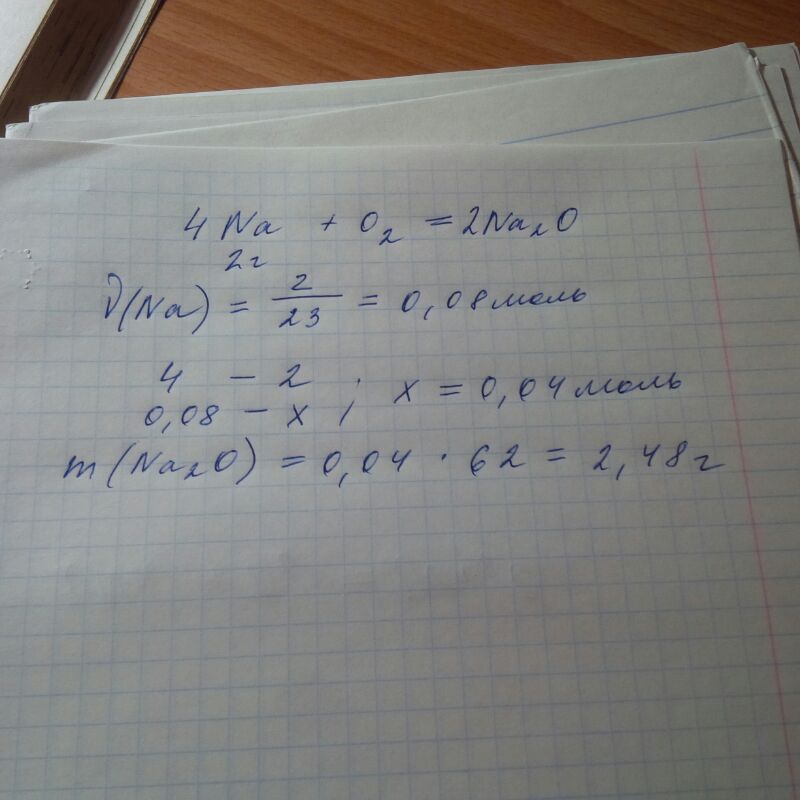 4Na + O₂ = 2Na₂O
2г
ν(Na) = 2/23 = 0,08 моль
4 – 2
0,08 – x ; x = 0,04 моль
m(Na₂O) = 0,04 · 62 = 2,48 г